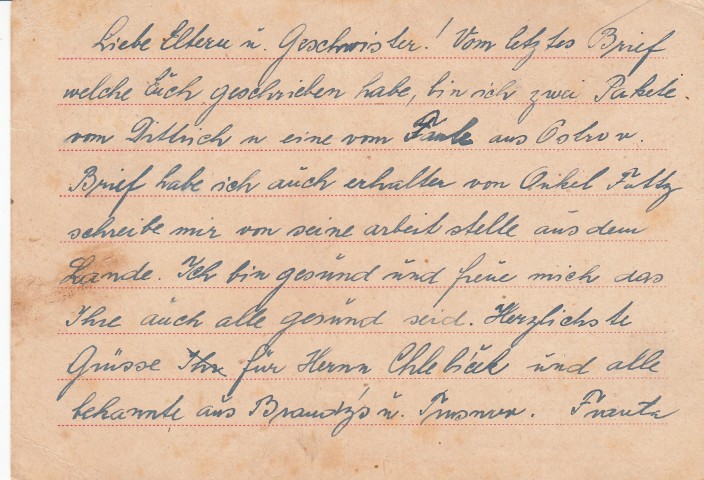 Liebe Eltern u. Geschwister! Vom letztes Brief
welche Euch geschrieben habe, bin ich zwei Pakete.
vom Dittrich u eine vom aus Ostrov.
Brief habe ich auch erhalter von Onkel
schreibe mir von seine arbeit stelle aus dem
Lande. Ich bin gesund und freue mich das
Ihre auch alle gesund seid. Herzlichste
Grüsse Ihr für Herrn Chlebíček und alle
bekannte aus Brandýs u.